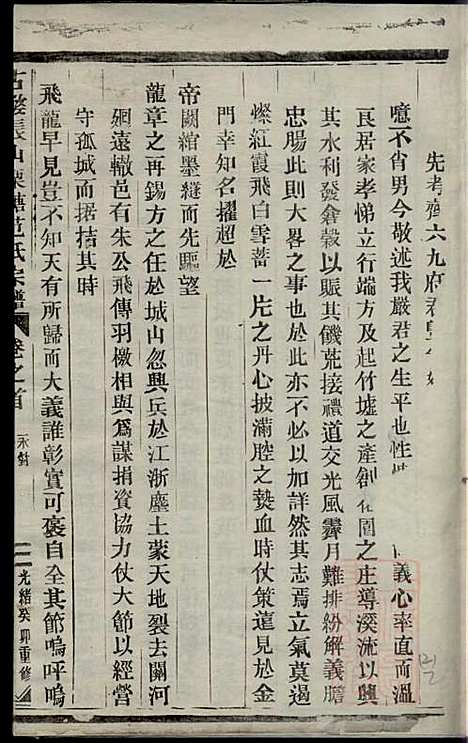 先考齊六九府君
噫不肖男今敬述我嚴君之生平也性 義心率直而溫
艮居家孝悌立行端方及起竹墟之產創 圍之庄導溪流以興
其水利發倉穀以賑其饑荒接禮道交光風霽月難排紛解義膽
忠腸此則大畧之事也於此亦不必以加詳然其志焉立氣莫遏
燦紅霞飛白雪蓄一片之丹心披滿腔之熱血時仗策蓮見於金
門幸知名擢超於
帝闕綰墨縫而先驅望
龍章之再錫方之任於城山忽興兵於江浙塵土蒙天地裂去關河
迥遠轍邑有朱公飛傳羽檄相與爲謀捐資協力仗大節以經營
守孤城而据拮其時
飛龍早見豈不知天有所歸而大義誰彰實可褒自全其節嗚呼嗚
山栗塘范氏宗譜 卷之首 永 二 光緒癸卯重修